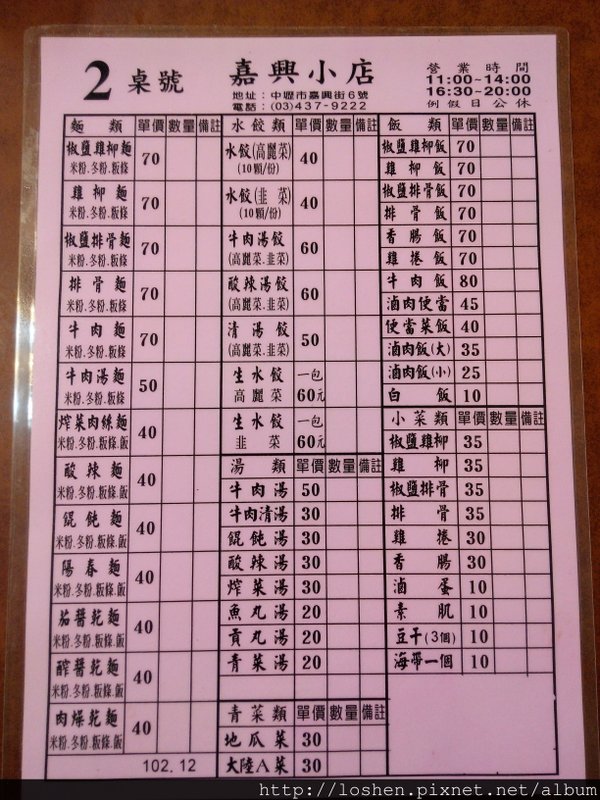 2 桌號
嘉興小店
地址：中壢市嘉興街6號
電話：(03)437-9222
營業時間
11:00~14:00
16:30~20:00
例假日公休
麵類 單價 數量 備註
椒鹽雞柳麵 70
米粉.冬粉.粄條
雞柳麵 70
米粉.冬粉.粄條
椒鹽排骨麵 70
米粉.冬粉.粄條
排骨麵 70
米粉.冬粉.粄條
牛肉麵 70
米粉.冬粉.粄條
牛肉湯麵 50
米粉.冬粉.粄條
榨菜肉絲麵 40
米粉.冬粉.粄條.飯
酸辣麵 40
米粉.冬粉.粄條.飯
餛飩麵 40
米粉.冬粉.粄條.飯
陽春麵 40
米粉.冬粉.粄條.飯
茄醬乾麵 40
米粉.冬粉.粄條.飯
醡醬乾麵 40
米粉.冬粉.粄條.飯
肉燥乾麵 40
米粉.冬粉.粄條.飯
102.12
水餃類 單價 數量 備註
水餃(高麗菜) 40
(10顆/份)
水餃(韭菜) 40
(10顆/份)
牛肉湯餃 60
(高麗菜.韭菜)
酸辣湯餃 60
(高麗菜.韭菜)
清湯餃 50
(高麗菜.韭菜)
生水餃 一包
高麗菜 60元
生水餃 一包
韭菜 60元
湯類 單價 數量 備註
牛肉湯 50
牛肉清湯 30
餛飩湯 30
酸辣湯 30
榨菜湯 30
魚丸湯 20
貢丸湯 20
青菜湯 20
青菜類 單價 數量 備註
地瓜菜 30
大陸A菜 30
飯類 單價 數量 備註
椒鹽雞柳飯 70
雞柳飯 70
椒鹽排骨飯 70
排骨飯 70
香腸飯 70
雞捲飯 70
牛肉飯 80
滷肉便當 45
便當菜飯 40
滷肉飯(大) 35
滷肉飯(小) 25
白飯 10
小菜類 單價 數量 備註
椒鹽雞柳 35
雞柳 35
椒鹽排骨 35
排骨 35
雞捲 30
香腸 30
滷蛋 10
素肌 10
豆干(3個) 10
海帶一個 10
http://loshen.pixnet.net/album